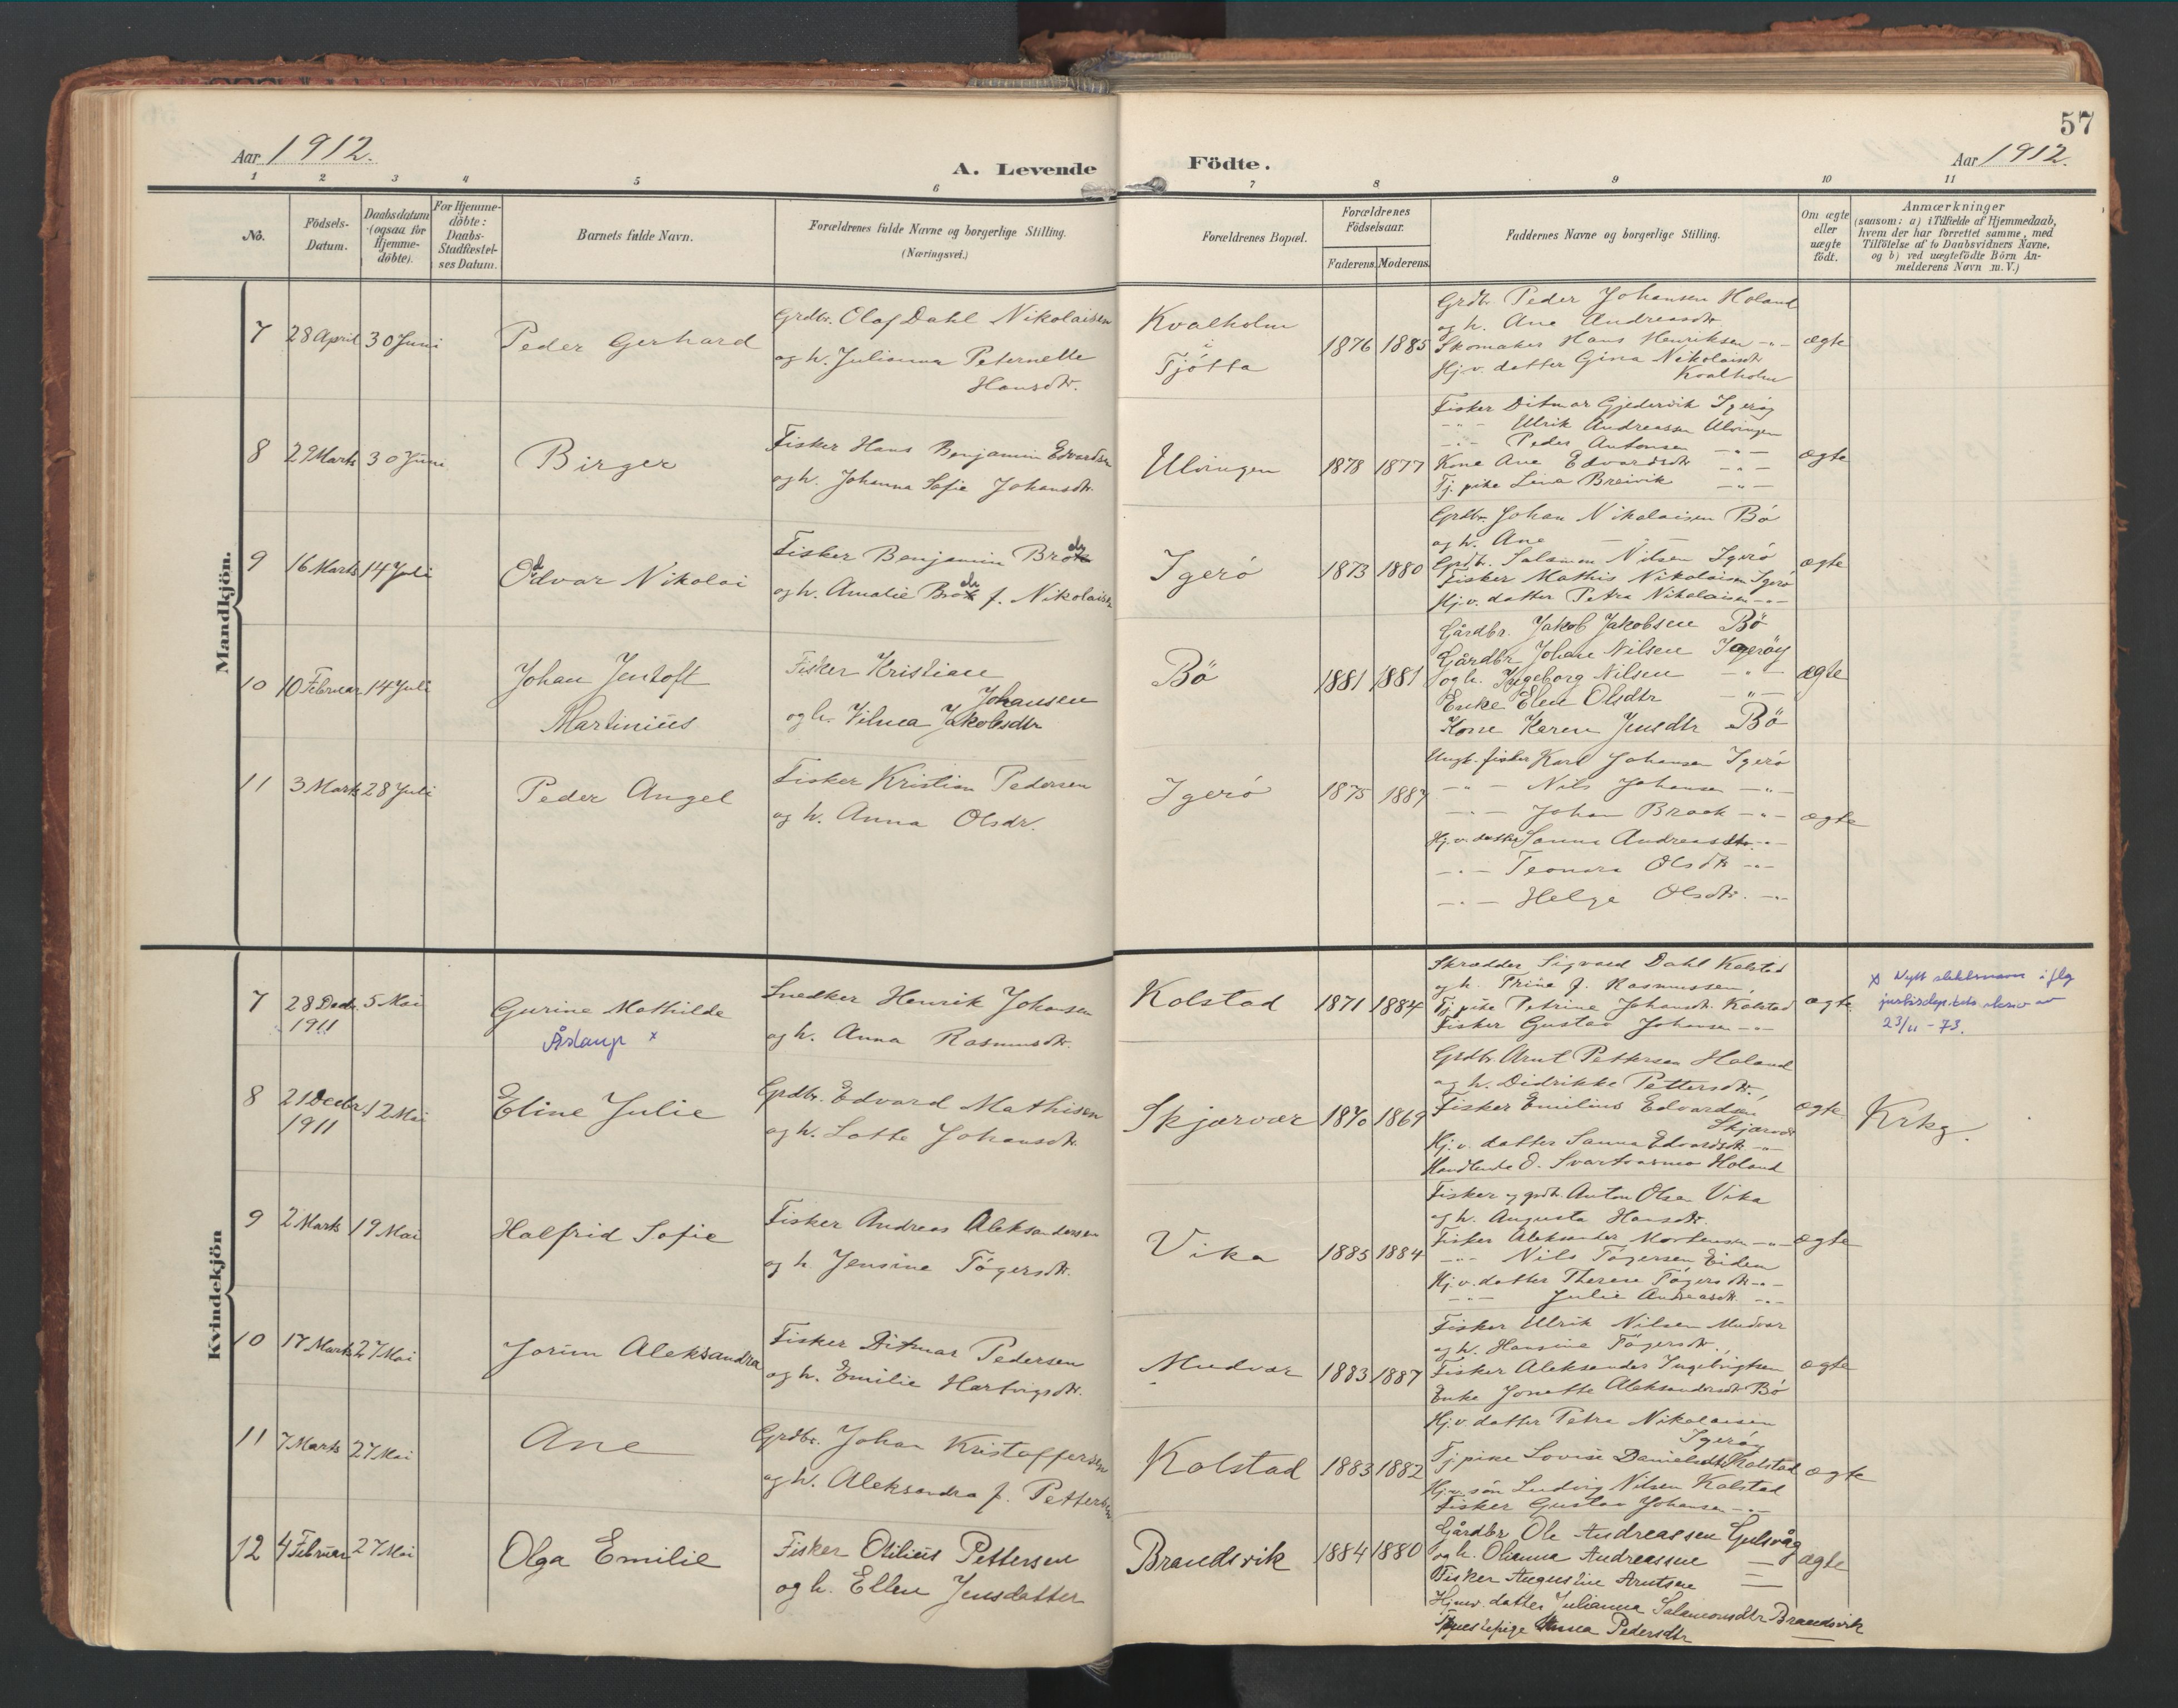 57
Aar 1912.
A. Levende Födte.
Aar 1912.
1 2 3 4 5 6 7 8 9 10 11
No.
Födsels-Datum.
Daabsdatum (ogsaa for Hjemme-döbte).
For Hjemme-döbte: Daabs-Stadfæstel-ses Datum.
Barnets fulde Navn.
Forældrenes fulde Navne og borgerlige Stilling.
(Næringsvei.)
Forældrenes Bopæl.
Forældrenes Födselsaar.
Faderens. Moderens.
Faddernes Navne og borgerlige Stilling.
Om ægte eller uægte födt.
Anmærkninger
(saasom: a) i Tilfælde af Hjemmedaab,
hvem der har forrettet samme, med
Tilföielse af to Daabsvidners Navne,
og b) ved uægtefödte Börn An-
melderens Navn m. V.)
Mandkjön.
7 28 April 30 Juni Peder Gerhard
Grdbr. Olaf Dahl Nikolaisen
og h. Julianna Peternelle
Hansdtr.
Kvalholm
i
Tjötta
1876 1885
Grdbr. Peder Johansen Holand
og h. Ane Andreasdtr.
Skomaker Hans Henriksen -"-
Hj.v. datter Gina Nikolaisdtr
Kvalholm
ægte
8 29 Marts 30 Juni Birger
Fisker Hans Benjamin Edvardsen
og h. Johanna Sofie Johansdtr.
Ulvingen
1878 1877
Fisker Ditmar Gjedervik Igeröy
-"- Ulrik Andreassen Ulvingen
-"- Peder Antonsen -"-
Kone Ane Edvardsdtr -"-
Tj. pike Lina Breivik -"-
ægte
9 16 Marts 14 Juli Odvar Nikolai
Fisker Benjamin Brok
og h. Amalie Brok f. Nikolaisen
Igerö
1873 1880
Grdbr Johan Nikolaisen Bö
og h. Ane -"-
Grdbr. Salamon Nilsen Igerö
Fisker Mathis Nikolaisen Igerö
Hj.v. datter Petra Nikolaisen -"-
ægte
10 10 Februar 14 Juli Johan Jentoft
Martinius
Fisker Kristian
Johansen
og h. Vilma Jakobsdtr
Bö
1881 1881
Gårdbr. Jakob Jakobsen Bö
Gårdbr Johan Nilsen Igeröy
og h. Ingeborg Nilsen -"-
Enke Elen Olsdtr -"-
Kone Karen Jensdtr Bö
ægte
11 3 Marts 28 Juli Peder Angel
Fisker Kristian Pedersen
og h. Anna Olsdr.
Igerö
1875 1887
Ungk. fisker Karl Johansen Igerö
-"- Nils Johansen -"-
-"- Johan Braok -"-
Hj.v. datter Sanna Andreasdtr. -"-
-"- Teonora Olsdtr -"-
-"- Helga Olsdtr. -"-
ægte
Kvindekjön
7 28 Decbr. 5 Mai Gurine Mathilde
1911
Åstaup x
Snedker Henrik Johansen
og h. Anna Rasmusdtr.
Kolstad
1871 1884
Skrædder Sigvard Dahl Kolstad
og h. Trine f. Rasmussen,
Tj. pike Petrine Johansdtr. Kolstad
Fisker Gustav Johansen -"-
ægte
x Nytt slektsnavn iflg
justisdep.tets skriv av
23/11 - 73.
8 21 Decbr 12 Mai Eline Julie
1911
Grdbr. Edvard Mathisen
og h. Lotte Johansdtr.
Skjærvær
1870 1869
Grdbr. Arnt Pettersen Holand
og h. Didrikke Pettersdtr,
Fisker Emilius Edvardsen
Skjærvær
Hj.v. datter Sanna Edvardsdtr. -"-
Handlende O. Svartvasmo Holand
ægte
Krkg.
9 2 Marts 19 Mai Halfrid Sofie
Fisker Andreas Aleksandersen
og h Jensine Tögersdtr.
Vika
1885 1884
Fisker og grdbr. Anton Olsen Vika
og h. Augusta Hansdtr.
Fisker Aleksander Mortensen -"-
-"- Nils Tögersen Eiden
Hj.v. datter Therese Tögersdtr -"-
-"- Julie Andreasdtr. -"-
ægte
10 17 Marts 27 Mai Jorun Aleksandra
Fisker Ditmar Pedersen
og h. Emilie Hartvigsdtr.
Mudvær
1883 1887
Fisker Ulrik Nilsen Mudvær
og h. Hansine Tögersdtr.,
Fisker Aleksander Ingebrigtsen
Enke Jonette Aleksandersdtr Bö
Hj.v. datter Petra Nikolaisen
Igerö
ægte
11 7 Marts 27 Mai Ane
Grdbr. Johan Kristoffersen
og h. Aleksandra f. Pettersen
Kolstad
1883 1882
Tj pike Lovise Danielsdtr Kolstad
Hj.v. sön Ludvig Nilsen Kolstad
Fisker Gustav Johansen -"-
ægte
12 4 Februar 27 Mai Olga Emilie
Fisker Otilius Pettersen
og h. Ellen Jensdatter
Brandsvik
1884 1880
Gårdbr Ole Andreassen Gulsvåg
og h. Ohanna Andreassen -"-
Fisker Augustin Arntsen
Hjmv. datter Julianna Salamonsdtr Brandsvik
Tjenestepige Anna Pedersdtr
ægte